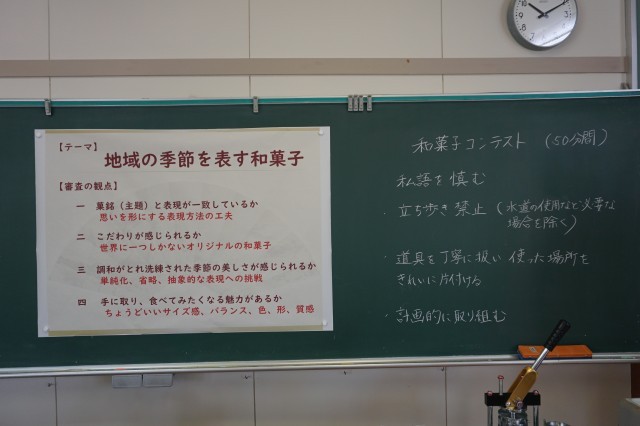 【テーマ】
地域の季節を表す和菓子
【審査の観点】
一　菓銘（主題）と表現が一致しているか
思いを形にする表現方法の工夫
二　こだわりが感じられるか
世界に一つしかないオリジナルの和菓子
三　調和がとれ洗練された季節の美しさが感じられるか
単純化、省略、抽象的な表現への挑戦
四　手に取り、食べてみたくなる魅力があるか
ちょうどいいサイズ感、バランス、色、形、質感
和菓子コンテスト （50分間）
・私語を慎む
・立ち歩き禁止（水道の使用など必要な
場合を除く）
・道具を丁寧に扱い 使った場所を
きれいに片付ける
・計画的に取り組む